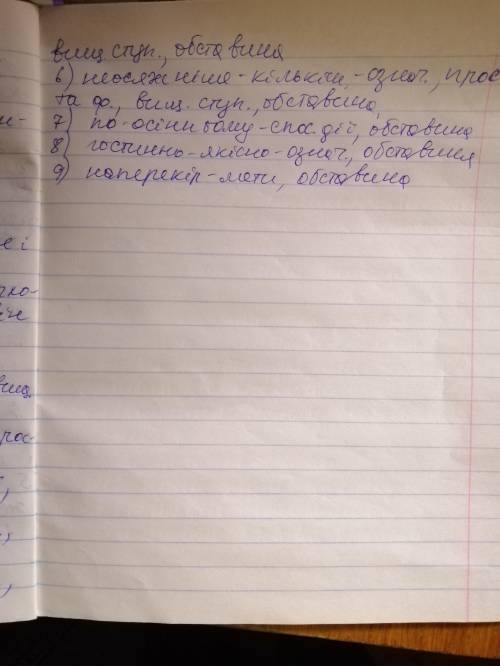 вищ. ступ., обставина
6) неосяжніше - кількісн.-означ., прос
та ф., вищ. ступ., обставина,
7) по-осінньому - спос. дії, обставина
8) гостинно - якісно-означ., обставина
9) наперекір - мети, обставина